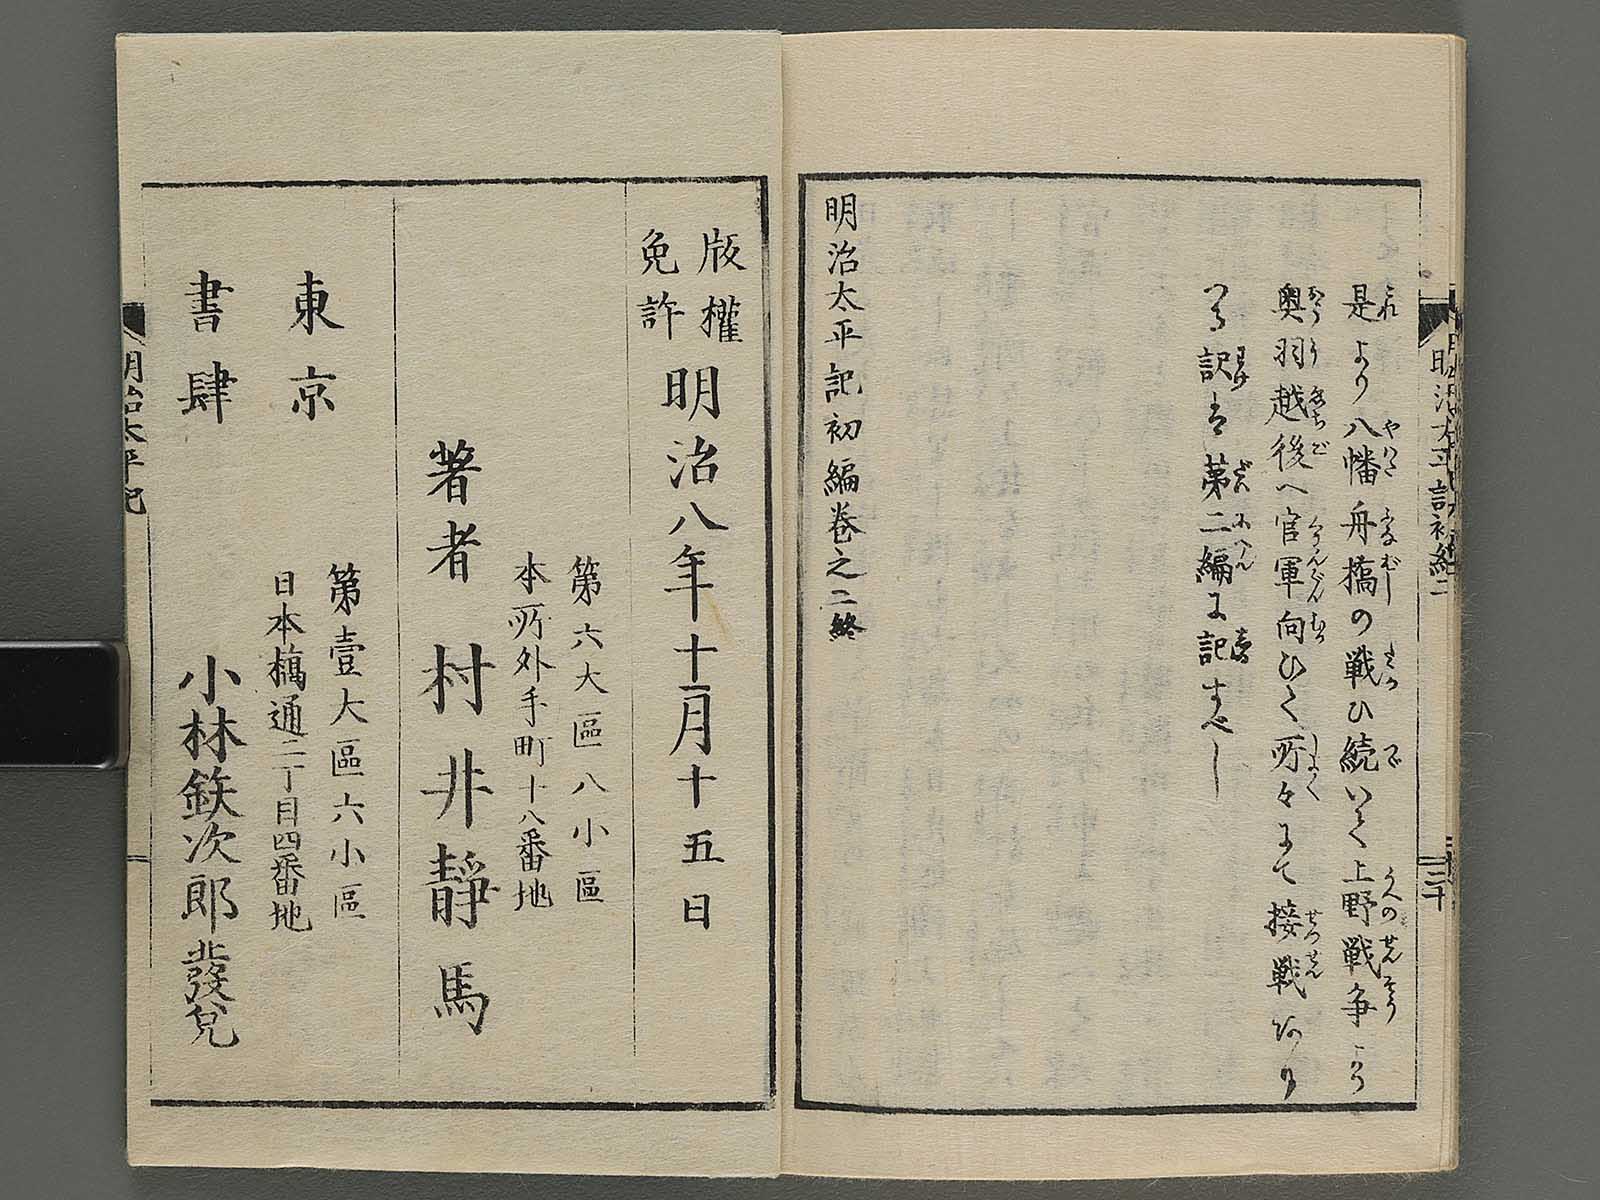 是より八幡舟橋の戦ひ続いて上野戦争より
奥羽越後へ官軍向ひて所々にて接戦ありし
訳は第二編に記すべし
明治太平記初編巻之二終
版權
免許
明治八年十二月十五日
第六大區八小區
本所外手町十八番地
著者 村井靜馬
東京
書肆
第壹大區六小區
日本橋通二丁目四番地
小林鉄次郎發兌
明治太平記